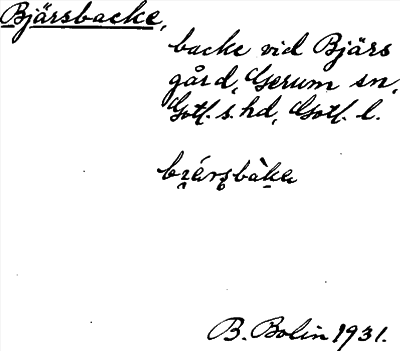 Bjärsbacke,
backe vid Bjärs
gård, Gerum sn,
Gotl. s. hd, Gotl. l.
B. Bolin 1931.